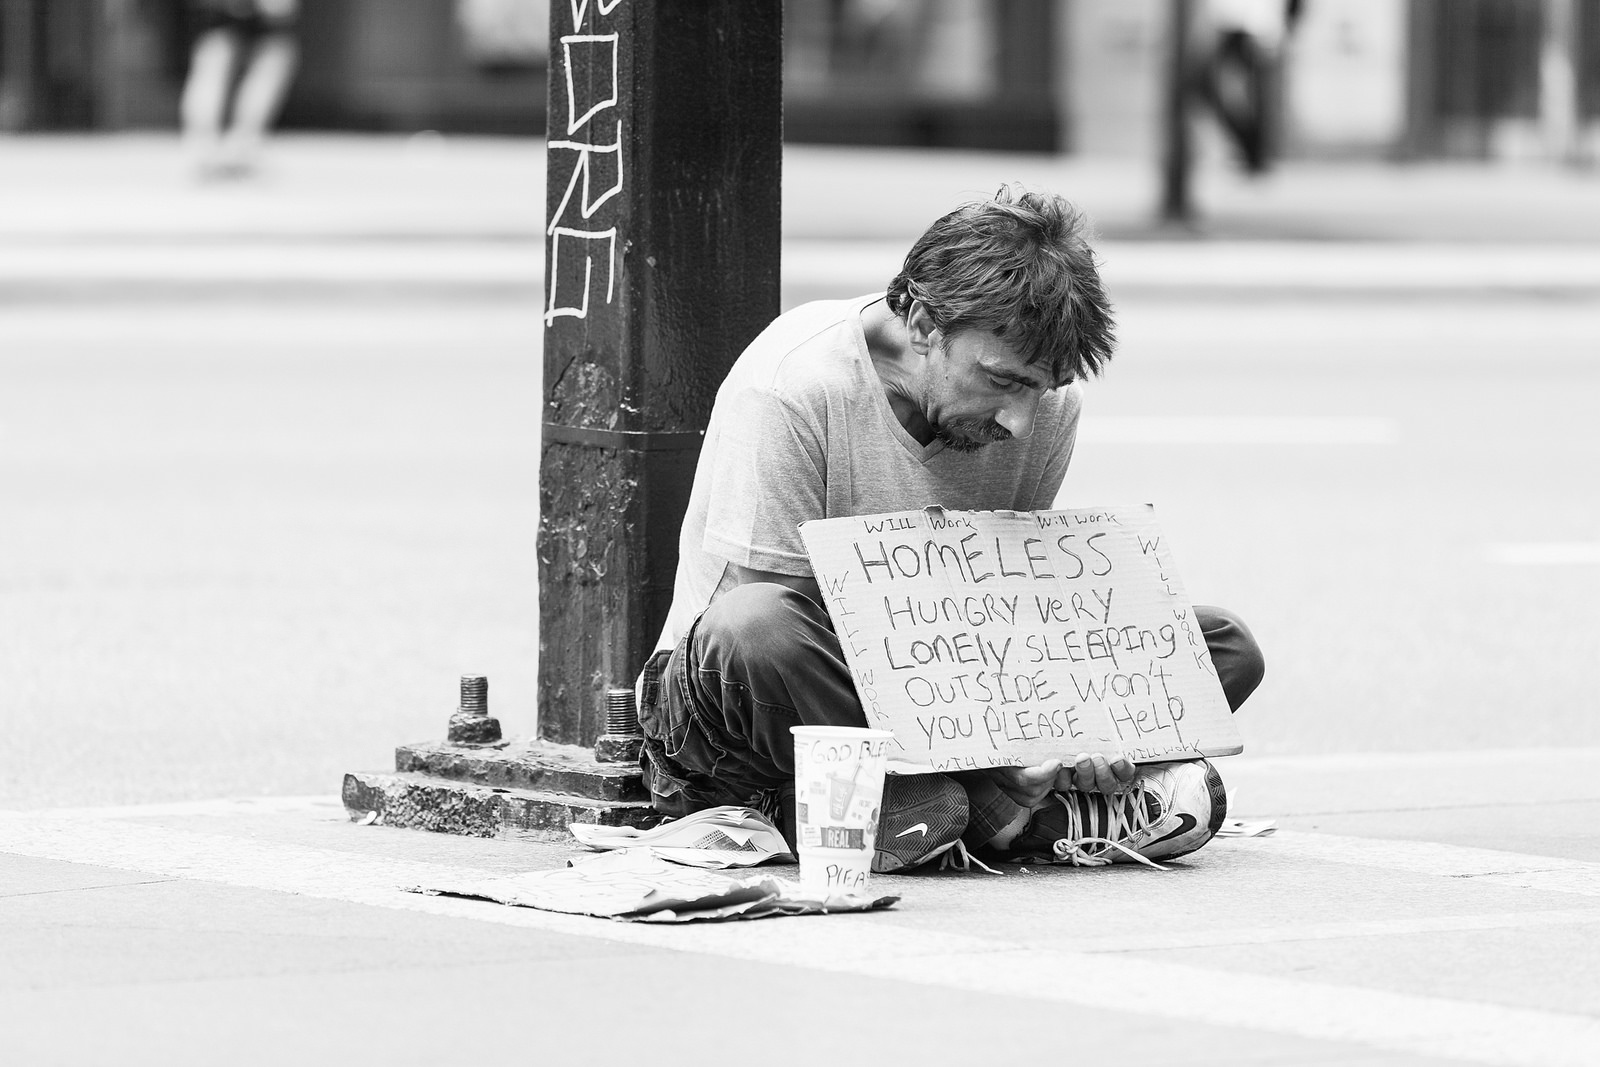 ORE
WILL Work Will work
HOMELESS
HUNGRY VERY
LONELY SLEEPING
OUTSIDE WON'T
YOU PLEASE HELP
WILL WORK
WILL WORK
WILL WORK WILL WORK
GOD BLE
REAL
PLEA